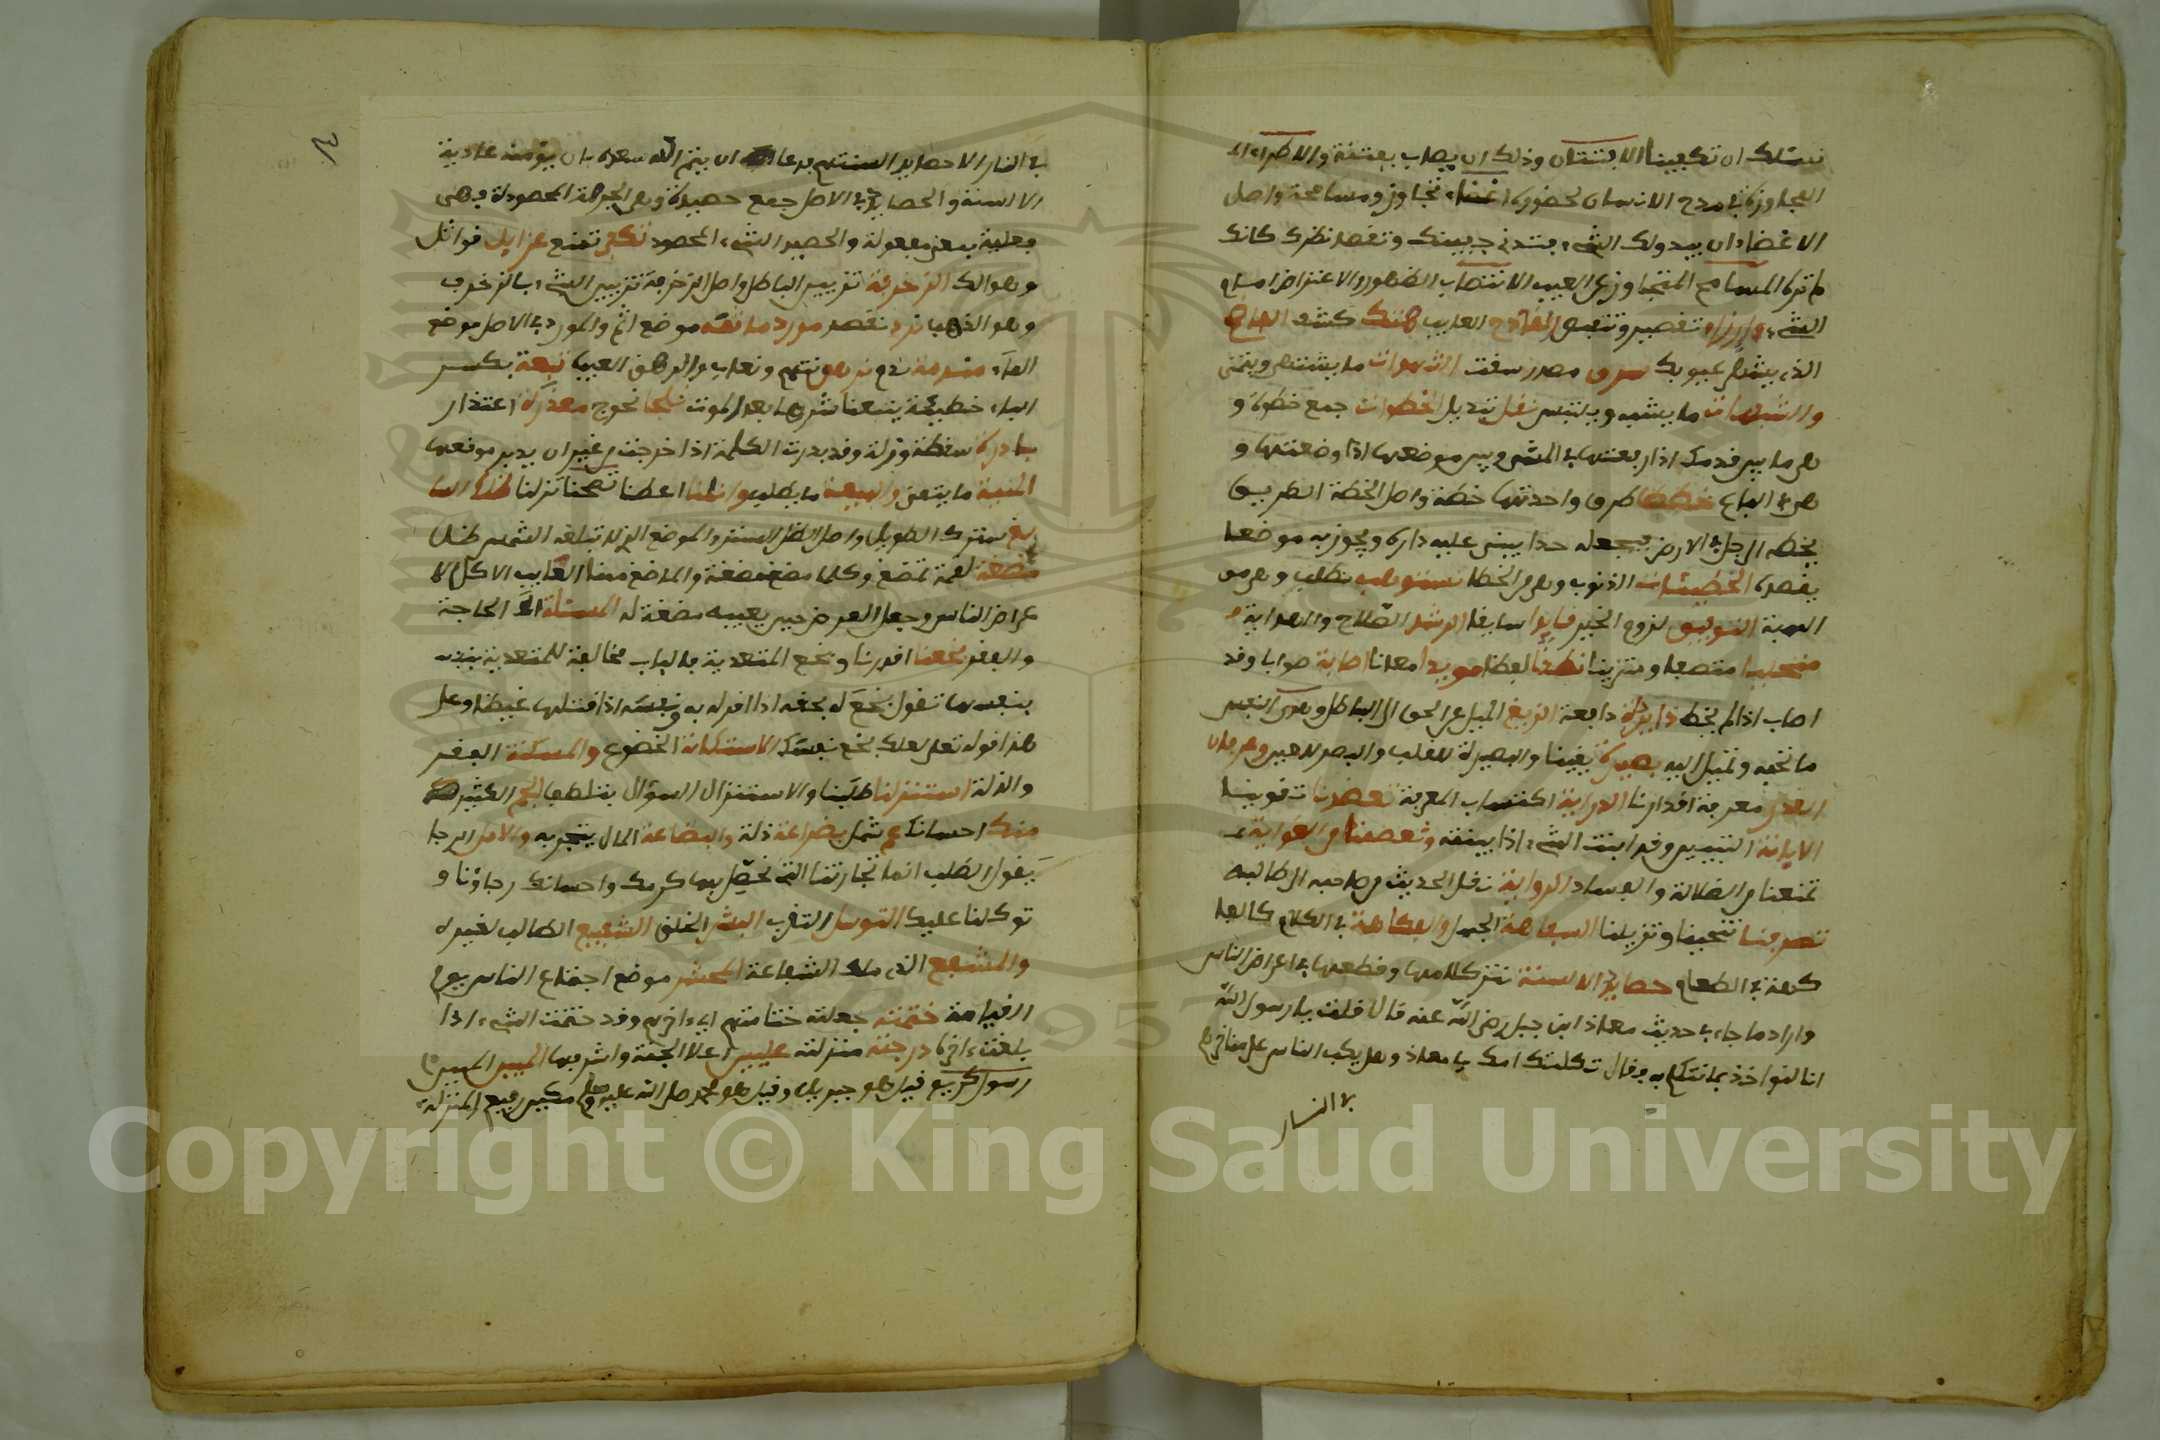 نسئلك ان تكفينا الافتتان وذلك ان يصاب بفتنة والاطراء
المجاوزة في مدح الانسان بحضوره اغضاء تجاوز ومسامحة واصل
الاغضاء ان يبدو لك الشيء فتدني جفنيك وتغض نظرك كانك
لم تره المسامح المتجاوز عن العيب الانتصاب الظهور والاعتراض امام
الشيء وازراء تقصير وتنقيص القادح العايب هتك كشف الفاضح
الذي يشهر عيوبك سوق مصدر سقت الشهوات ما يشتهى ويتمنى
والشبهات ما يشبه ويلتبس نقل تبديل الخطوات جمع خطوة و
هي ما بين قدميك اذا رفعتها في المشي وبين موضعها اذا وضعتها و
هي في الباع خطط طرق واحدتها خطة واصل الخطة الطريق
يخطه الرجل في الارض فيجعله حدا يبني عليه داره ويحوز به موضعا
يقصده الخطيئات الذنوب وهي من الخطا نستوهب نطلب وهي من
الهبة التوفيق لزوم الخير قايدا سايقا الرشد الصلاح والهداية
متحليا متصفا ومتزينا نطقا لفظا مويدا معانا اصابة صوابا وقد
اصاب اذا لم يخط ذايدة دافعة الزيغ الميل عن الحق الى الباطل وهوى النفس
ما تحبه وتميل اليه بصيرة يقينا والبصيرة للقلب والبصر للعين وعرفان
القدر معرفة اقدارنا الدراية اكتساب المعرفة تعضدنا تقوينا
الابانة التبيين وقد ابنت الشيء اذا بينته وتعصمنا من الغواية
تمنعنا من الضلالة والفساد الرواية نقل الحديث من صاحبه الى طالبه
تصرفنا تنحينا وتزيلنا السفاهة الجهل والفكاهة في الكلام كالفا
كهة في الطعام حصايد الالسنة نثر كلامها وقطعها في اعراض الناس
واراد ما جاء في حديث معاذ ابن جبل رضي الله عنه قال قلت يا رسول الله
انا لنواخذ بما نتكلم به فقال ثكلتك امك يا معاذ وهل يكب الناس على مناخرهم
في النار
في النار الا حصايد السنتهم فدعا ان يتم الله سعده بان يؤمنه عادية
الالسنة والحصايد في الاصل جمع حصيدة وهي الجرفة المحصودة فهي
فعلية بمعنى مفعولة والحصيد الشيء المحصود نكفى نمنع غوايل قواتل
وهوالك الزخرفة تزيين الباطل واصل الزخرفة تزيين الشيء بالزخرف
وهو الذهب نرد نقصد مورد ماثمة موضع اثم والمورد في الاصل موضع
الماء مندمة ندم نرهق نتهم ونعاب والرهق العيب تبعة بكسر
الباء خطيئة يتبعنا شرها بعد الموت نلجا نحوج معذرة اعتذار
بادرة سقطة وزلة وقد بدرت الكلمة اذا خرجت من غير ان يدبر موقعها
المنية ما يتمنى والبغية ما يطلب وانلنا اعطنا تضحنا تزلنا ظلك السا
بغ سترك الطويل واصل الظل الستر والموضع الذي لا تبلغه الشمس ظل
مضغة لقمة تمضغ وكلما مضغ مضغة والماضغ هنا العايب الاكل لا
عراض الناس وجعل العرض حين يعيبه مضغة له المسئلة الحاجة
والفقر بخعنا اقررنا وبخع المتعدية بالباب مخالفة للمتعدية
بنفسها تقول بخع له بحقه اذا اقر له به ونفسه اذا قتلها غيظا وعلى
هذا قوله تعلى لعلك بخع نفسك الاستكانة الخضوع والمسكنة الفقر
والذلة استنزلنا طلبنا والاستنزال السؤال بتلطف الجم الكثير
منك احسانك عم شمل بضراعة ذلة والبضاعة المال يتجر به والامل الرجا
يقول الطلب انما تجارتنا التي نحصل بها كرمك واحسانك رجاؤنا و
توكلنا عليك التوسل التقرب البشر الخلق الشفيع الطالب لغيره
والمشفع الذي ملك الشفاعة المحشر موضع اجتماع الناس يوم
القيامة ختمت جعلته ختامتهم اي اخرهم وقد ختمت الشيء اذا
بلغت اخره درجته منزلته عليين اعلا الجنة واشرفها المبين المبين
رسول كريم قيل هو جبريل وقيل هو محمد صلى الله عليه وسلم مكين رفيع المنزلة
Copyright © King Saud University
1957